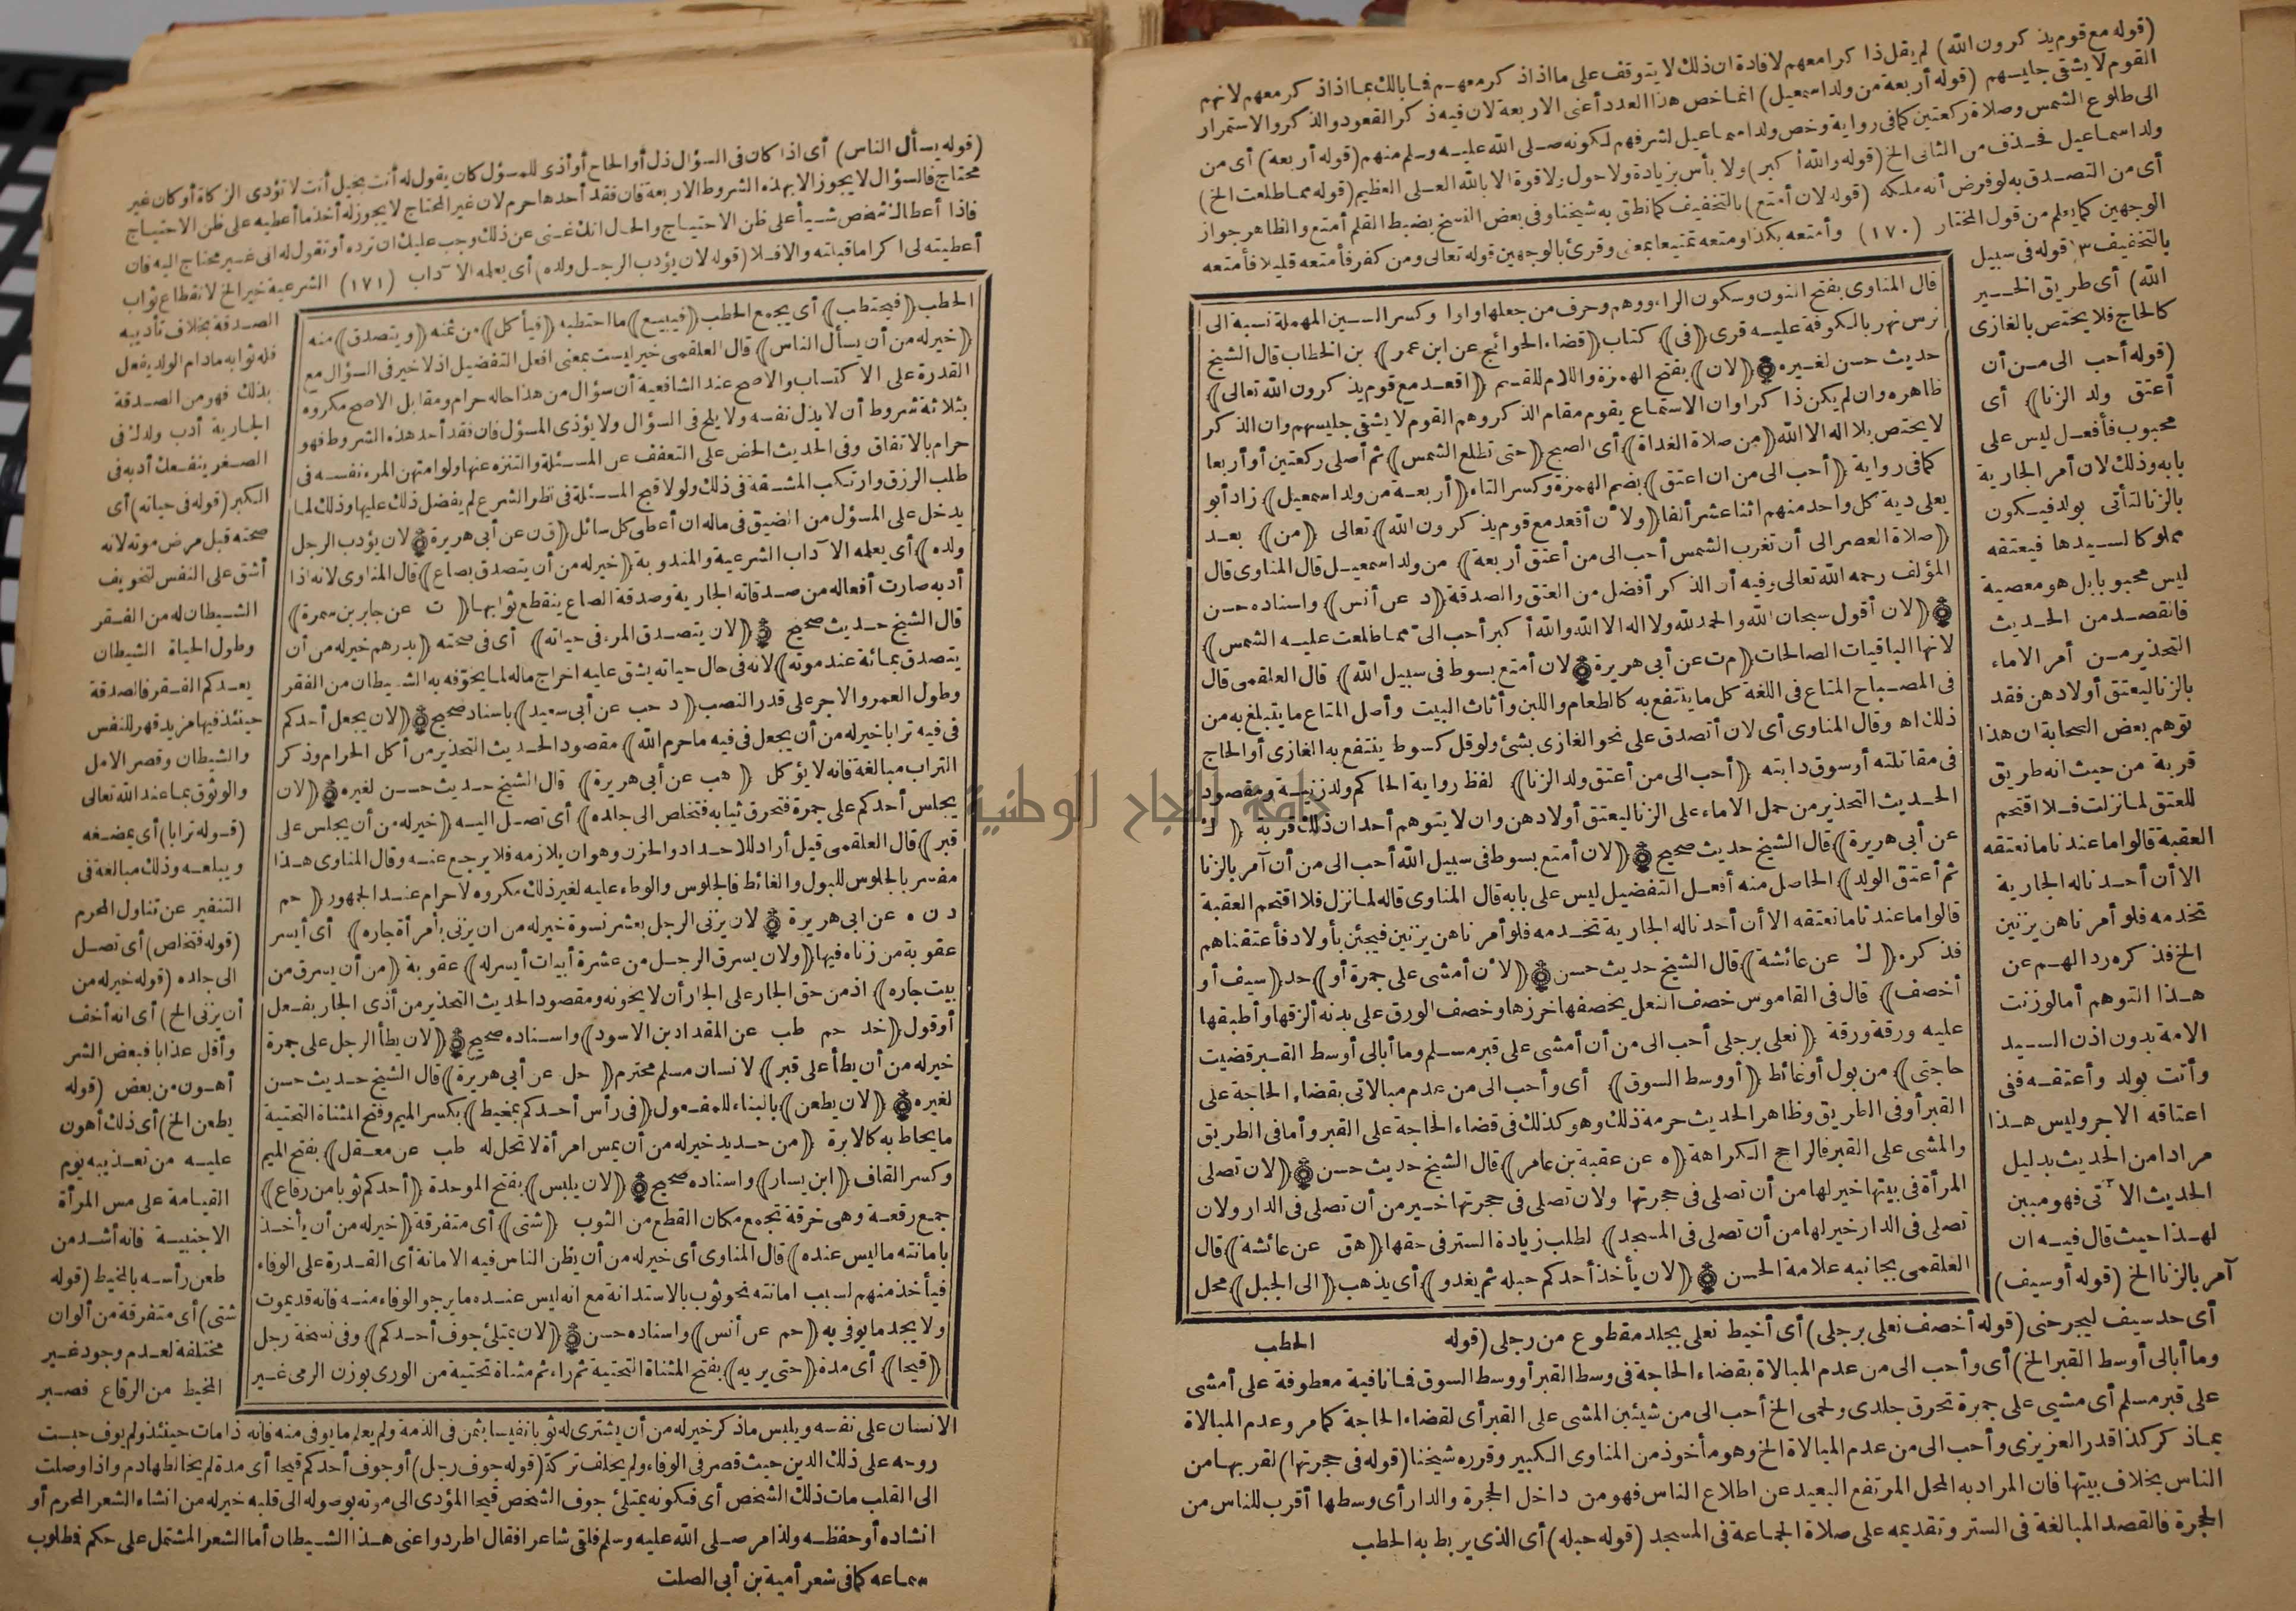 (قوله مع قوم يذكرون الله) لم يقل ذاكرا معهم لافادة ان ذلك لا يتوقف على ما اذا ذكر معهم فما بالك بما اذا ذكر معهم لانهم
القوم لا يشقى جليسهم (قوله أربعة من ولد اسمعيل) انما خص هذا العدد أعنى الاربعة لان فيه ذكر القعود والذكر والاستمرار
الى طلوع الشمس وصلاة ركعتين كما فى رواية وخص ولد اسماعيل لشرفهم لكونه صلى الله عليه وسلم منهم (قوله أربعة) أى من
ولد اسماعيل فحذف من الثانى الخ (قوله والله أكبر) ولا بأس بزيادة ولا حول ولا قوة الا بالله العلى العظيم (قوله مما طلعت الخ)
أى من التصدق به لو فرض أنه ملكه (قوله لان أمتع) بالتخفيف كما نطق به شيخنا وفى بعض النسخ بضبط القلم أمتع والظاهر جواز
الوجهين كما يعلم من قول المختار (١٧٠) وأمتعه بكذا ومتعه تمتيعا بمعنى وقرئ بالوجهين قوله تعالى ومن كفر فأمتعه قليلا فأمتعه
بالتخفيف قوله فى سبيل
الله) أى طريق الخير
كالحاج فلا يختص بالغازى
(قوله أحب الى من أن
أعتق ولد الزنا) أى
محبوب فأفعل ليس على
بابه وذلك لان أمر الجارية
بالزنا لتأتى بولد فيكون
مملوكا لسيدها فيعتقه
ليس محبوبا بل هو معصية
فالقصد من الحديث
التحذير من أمر الاماء
بالزنا ليعتق أولادهن فقد
توهم بعض الصحابة ان هذا
قربة من حيث انه طريق
للعتق لما نزلت فلا اقتحم
العقبة قالوا ما عندنا ما نعتقه
الا أن أحدنا له الجارية
تخدمه فلو أمرناهن يزنين
الخ فذكره رد الهم عن
هذا التوهم أما لو زنت
الامة بدون اذن السيد
وأتت بولد وأعتقه ففى
اعتاقه الاجر وليس هذا
مرادا من الحديث بدليل
الحديث الآتى فهو مبين
لهذا حيث قال فيه ان
آمر بالزنا الخ (قوله أوسيف)
قال المناوى بفتح النون وسكون الراء ووهم وحرف من جعلها واوا وكسر السين المهملة نسبة الى
نرس نهر بالكوفة عليه قرى (فى) كتاب (قضاء الحوائج عن ابن عمر) بن الخطاب قال الشيخ
حديث حسن لغيره (لان) بفتح الهمزة واللام للقسم (اقعد مع قوم يذكرون الله تعالى)
ظاهره وان لم يكن ذاكرا وان الاستماع يقوم مقام الذكر وهم القوم لا يشقى جليسهم وان الذكر
لا يختص بلا اله الا الله (من صلاة الغداة) أى الصبح (حتى تطلع الشمس) ثم أصلى ركعتين أو أربعا
كما فى رواية (أحب الى من ان اعتق) بضم الهمزة وكسر التاء (أربعة من ولد اسمعيل) زاد أبو
يعلى دية كل واحد منهم اثنا عشر ألفا (ولأن أقعد مع قوم يذكرون الله) تعالى (من) بعد
(صلاة العصر الى أن تغرب الشمس أحب الى من أعتق أربعة) من ولد اسمعيل قال المناوى قال
المؤلف رحمه الله تعالى وفيه أن الذكر أفضل من العتق والصدقة (د عن أنس) واسناده حسن
(لان أقول سبحان الله والحمد لله ولا اله الا الله والله أكبر أحب الى مما طلعت عليه الشمس)
لانها الباقيات الصالحات (م ت عن أبى هريرة لان أمتع بسوط فى سبيل الله) قال العلقمى قال
فى المصباح المتاع فى اللغة كل ما ينتفع به كالطعام واللبن وأثاث البيت وأصل المتاع ما يتبلغ به من
ذلك اه وقال المناوى أى لان أتصدق على نحو الغازى بشئ ولو قل كسوط ينتفع به الغازى أو الحاج
فى مقاتلته أو سوق دابته (أحب الى من أعتق ولد الزنا) لفظ رواية الحاكم ولد زنية ومقصود
الحديث التحذير من حمل الاماء على الزنا ليعتق أولادهن وان لا يتوهم أحد ان ذلك قربة (ك
عن أبى هريرة) قال الشيخ حديث صحيح (لان أمتع بسوط فى سبيل الله أحب الى من أن آمر بالزنا
ثم أعتق الولد) الحاصل منه أفعل التفضيل ليس على بابه قال المناوى قاله لما نزل فلا اقتحم العقبة
قالوا ما عندنا ما نعتقه الا أن أحدنا له الجارية تخدمه فلو أمرناهن يزنين فيجئن بأولاد فأعتقناهم
فذكره (ك عن عائشة) قال الشيخ حديث حسن (لأن أمشى على جمرة أو) حد (سيف أو
أخصف) قال فى القاموس خصف النعل يخصفها خرزها وخصف الورق على بدنه ألزقها وأطبقها
عليه ورقة ورقة (نعلى برجلى أحب الى من أن أمشى على قبر مسلم وما أبالى أوسط القبر قضيت
حاجتى) من بول أو غائط (أو وسط السوق) أى وأحب الى من عدم مبالاتى بقضاء الحاجة على
القبر أو فى الطريق وظاهر الحديث حرمة ذلك وهو كذلك فى قضاء الحاجة على القبر وأما فى الطريق
والمشى على القبر فالراجح الكراهة (ه عن عقبة بن عامر) قال الشيخ حديث حسن (لان تصلى
المرأة فى بيتها خير لها من أن تصلى فى حجرتها ولان تصلى فى حجرتها خير من أن تصلى فى الدار ولان
تصلى فى الدار خير لها من أن تصلى فى المسجد) لطلب زيادة الستر فى حقها (هق عن عائشة) قال
العلقمى بجانبه علامة الحسن (لان يأخذ أحدكم حبله ثم يغدو) أى يذهب (الى الجبل) محل
الحطب
أى حد سيف ليجرحنى (قوله أخصف نعلى برجلى) أى أخيط نعلى بجلد مقطوع من رجلى (قوله
وما أبالى أوسط القبر الخ) أى وأحب الى من عدم المبالاة بقضاء الحاجة فى وسط القبر أو وسط السوق فما نافية معطوفة على أمشى
على قبر مسلم أى مشيى على جمرة تحرق جلدى ولحمى الخ أحب الى من شيئين المشى على القبر أى لقضاء الحاجة كما مر وعدم المبالاة
بما ذكر كذا قدر العزيزى وأحب الى من عدم المبالاة الخ وهو مأخوذ من المناوى الكبير وقرره شيخنا (قوله فى حجرتها) لقربها من
الناس بخلاف بيتها فان المراد به المحل المرتفع البعيد عن اطلاع الناس فهو من داخل الحجرة والدار أى وسطها أقرب للناس من
الحجرة فالقصد المبالغة فى الستر وتقديمه على صلاة الجماعة فى المسجد (قوله حبله) أى الذى يربط به الحطب
(قوله يسأل الناس) أى اذا كان فى السؤال ذل أو الحاح أو أذى للمسؤل كان يقول له أنت بخيل أنت لا تؤدى الزكاة أو كان غير
محتاج فالسؤال لا يجوز الا بهذه الشروط الاربعة فان فقد أحدها حرم لان غير المحتاج لا يجوز له أخذ ما أعطيه على ظن الاحتياج
فاذا أعطاك شخص شيأ على ظن الاحتياج والحال انك غنى عن ذلك وجب عليك ان ترده أو تقول له انى غير محتاج اليه فان
أعطيته لى اكراما قبلته والا فلا (قوله لان يؤدب الرجل ولده) أى يعلمه الآداب (١٧١) الشرعية خير الخ لانقطاع ثواب
الصدقة بخلاف تأديبه
فله ثوابه ما دام الولد يفعل
بذلك فهو من الصدقة
الجارية أدب ولدك فى
الصغر ينفعك أدبه فى
الكبر (قوله فى حياته) أى
صحته قبل مرض موته لانه
أشق على النفس لتخويف
الشيطان له من الفقر
وطول الحياة الشيطان
يعدكم الفقر فالصدقة
حينئذ فيها مزيد قهر للنفس
والشيطان وقصر الامل
والوثوق بما عند الله تعالى
(قوله ترابا) أى يمضغه
ويبلعه وذلك مبالغة فى
التنفير عن تناول المحرم
(قوله فتخلص) أى تصل
الى جلده (قوله خير له من
أن يزنى الخ) أى انه أخف
وأقل عذابا فبعض الشر
أهون من بعض (قوله
يطعن الخ) أى ذلك أهون
عليه من تعذيبه يوم
القيامة على مس المرأة
الاجنبية فانه أشد من
طعن رأسه بالمخيط (قوله
شتى) أى متفرقة من ألوان
مختلفة لعدم وجود غير
المخيط من الرقاع فصبر
الحطب (فيحتطب) أى يجمع الحطب (فيبيع) ما احتطبه (فيأكل) من ثمنه (ويتصدق) منه
(خير له من أن يسأل الناس) قال العلقمى خير ليست بمعنى افعل التفضيل اذ لا خير فى السؤال مع
القدرة على الاكتساب والاصح عند الشافعية أن سؤال من هذا حاله حرام ومقابل الاصح مكروه
بثلاثة شروط أن لا يذل نفسه ولا يلح فى السؤال ولا يؤذى المسؤل فان فقد أحد هذه الشروط فهو
حرام بالاتفاق وفى الحديث الحض على التعفف عن المسئلة والتنزه عنها ولو امتهن المرء نفسه فى
طلب الرزق وارتكب المشقة فى ذلك ولولا قبح المسئلة فى نظر الشرع لم يفضل ذلك عليها وذلك لما
يدخل على المسؤل من الضيق فى ماله ان أعطى كل سائل (ق ن عن أبى هريرة لان يؤدب الرجل
ولده) أى يعلمه الآداب الشرعية والمندوبة (خير له من أن يتصدق بصاع) قال المناوى لانه اذا
أدبه صارت أفعاله من صدقاته الجارية وصدقة الصاع ينقطع ثوابها (ت عن جابر بن سمرة)
قال الشيخ حديث صحيح (لان يتصدق المرء فى حياته) أى فى صحته (بدرهم خير له من أن
يتصدق بمائة عند موته) لانه فى حال حياته يشق عليه اخراج ماله لما يخوفه به الشيطان من الفقر
وطول العمر والاجر على قدر النصب (د حب عن أبى سعيد) باسناد صحيح (لان يجعل أحدكم
فى فيه ترابا خير له من أن يجعل فى فيه ما حرم الله) مقصود الحديث التحذير من أكل الحرام وذكر
التراب مبالغة فانه لا يؤكل (هب عن أبى هريرة) قال الشيخ حديث حسن لغيره (لان
يجلس أحدكم على جمرة فتحرق ثيابه فتخلص الى جلده) أى تصل اليه (خير له من أن يجلس على
قبر) قال العلقمى قيل أراد للاحداد والحزن وهو ان يلازمه فلا يرجع عنه وقال المناوى هذا
مفسر بالجلوس للبول والغائط فالجلوس والوطء عليه لغير ذلك مكروه لا حرام عند الجمهور (حم
د ن ه عن ابى هريرة لان يزنى الرجل بعشر نسوة خير له من ان يزنى بامرأة جاره) أى أيسر
عقوبة من زناه فيها (ولان يسرق الرجل من عشرة أبيات أيسر له) عقوبة (من أن يسرق من
بيت جاره) اذ من حق الجار على الجار أن لا يخونه ومقصود الحديث التحذير من أذى الجار بفعل
أو قول (خد حم طب عن المقداد بن الاسود) واسناده صحيح (لان يطأ الرجل على جمرة
خير له من أن يطأ على قبر) لانسان مسلم محترم (حل عن أبى هريرة) قال الشيخ حديث حسن
لغيره (لان يطعن) بالبناء للمفعول (فى رأس أحدكم بمخيط) بكسر الميم وفتح المثناة التحتية
ما يخاط به كالابرة (من حديد خير له من أن يمس امرأة لا تحل له طب عن معقل) بفتح الميم
وكسر القاف (ابن يسار) واسناده صحيح (لان يلبس) بفتح الموحدة (أحدكم ثوبا من رقاع)
جمع رقعة وهى خرقة تجمع مكان القطع من الثوب (شتى) أى متفرقة (خير له من أن يأخذ
بامانته ما ليس عنده) قال المناوى أى خير له من أن يظن الناس فيه الامانة أى القدرة على الوفاء
فيأخذ منهم لسبب امانته نحو ثوب بالاستدانة مع انه ليس عنده ما يرجو الوفاء منه فانه قد يموت
ولا يجد ما يوفى به (حم عن أنس) واسناده حسن (لان يمتلئ جوف أحدكم) وفى نسخة رجل
(قيحا) أى مدة (حتى يريه) بفتح المثناة التحتية ثم راء ثم مثناة تحتية من الورى بوزن الرمى غير
الانسان على نفسه ويلبس ما ذكر خير له من أن يشترى له ثوبا نفيسا بثمن فى الذمة ولم يعلم ما يوفى منه فانه اذا مات حينئذ ولم يوف حبست
روحه على ذلك الدين حيث قصر فى الوفاء ولم يخلف تركة (قوله جوف رجل) أو جوف أحدكم قيحا أى مدة لم يخالطها دم واذا وصلت
الى القلب مات ذلك الشخص أى فكونه يمتلئ جوف الشخص قيحا المؤدى الى موته بوصوله الى قلبه خير له من انشاء الشعر المحرم أو
انشاده أو حفظه ولذا مر صلى الله عليه وسلم فلقى شاعرا فقال اطردوا عنى هذا الشيطان أما الشعر المشتمل على حكم فمطلوب
سماعه كما فى شعر أمية بن أبى الصلت
جامعة النجاح الوطنية